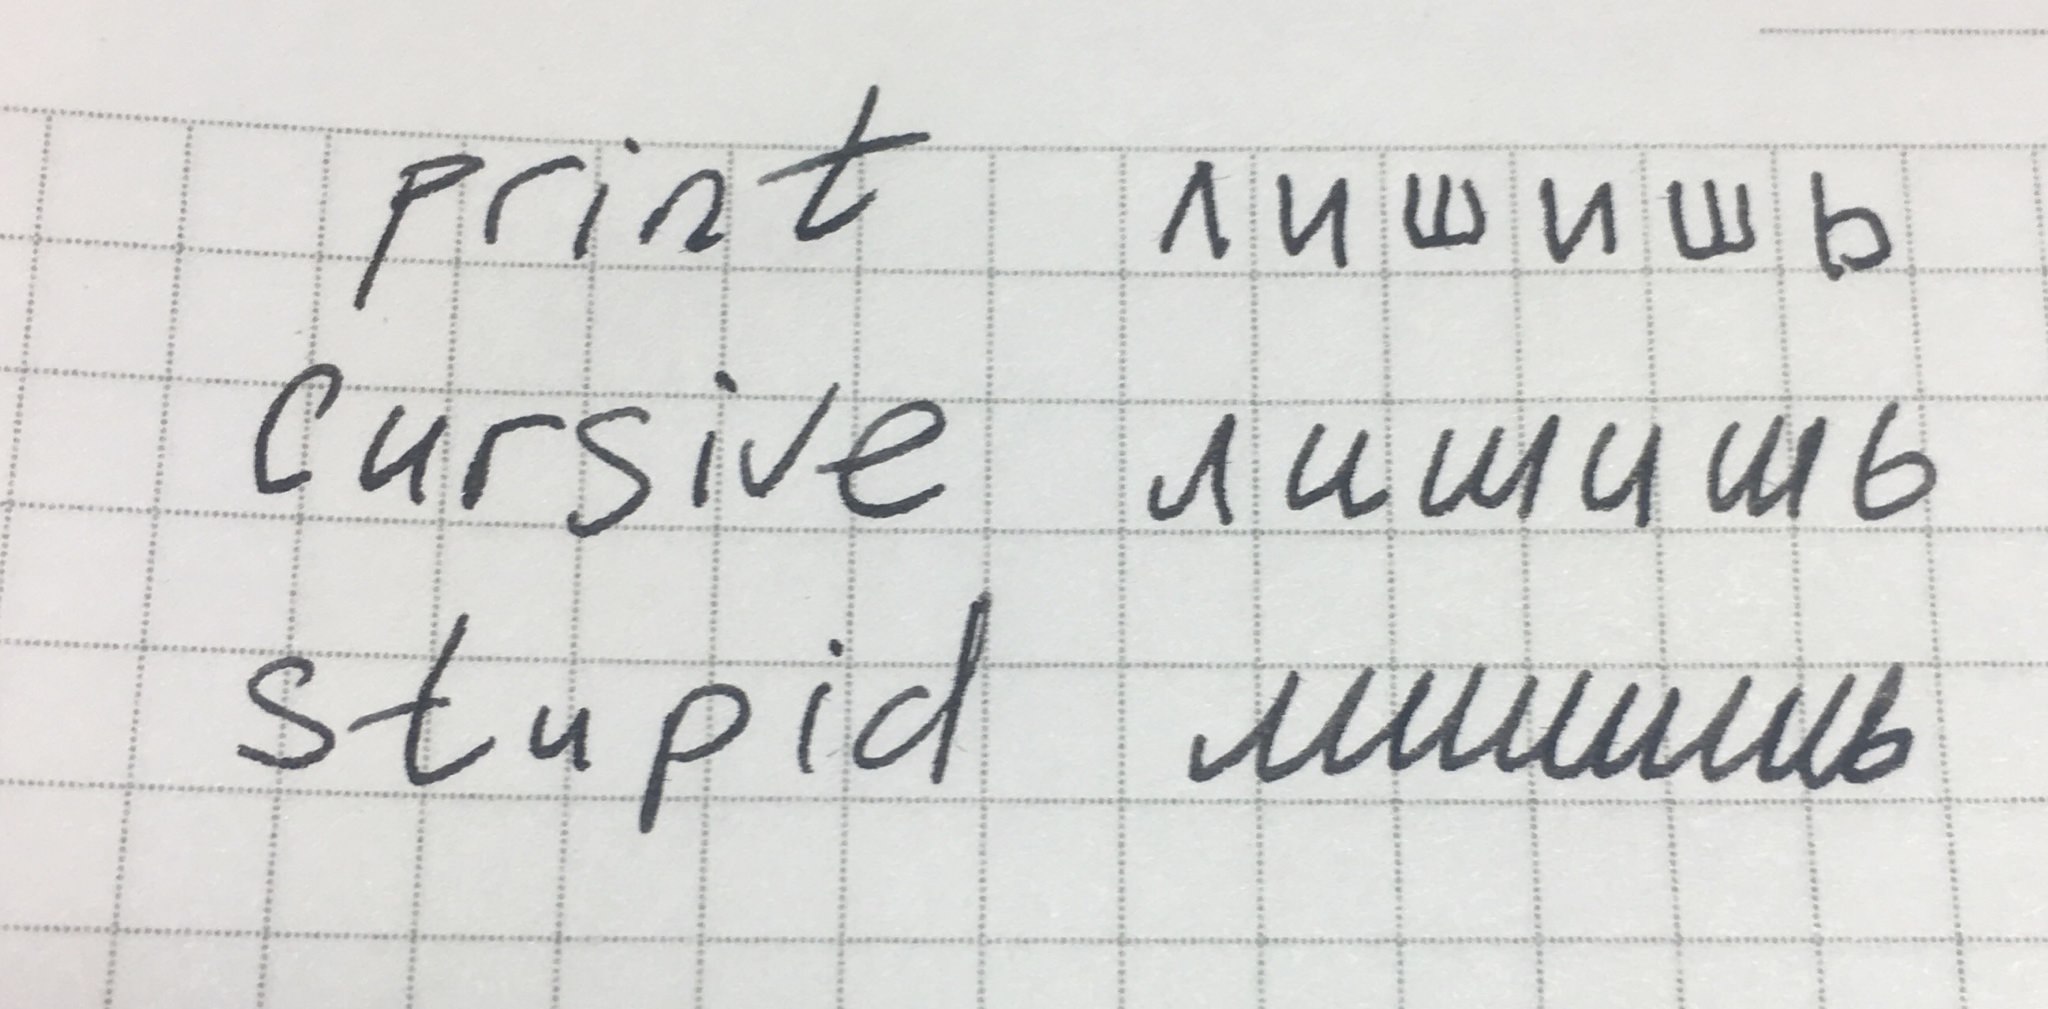 print лишишь
Cursive лишишь
stupid лишишь